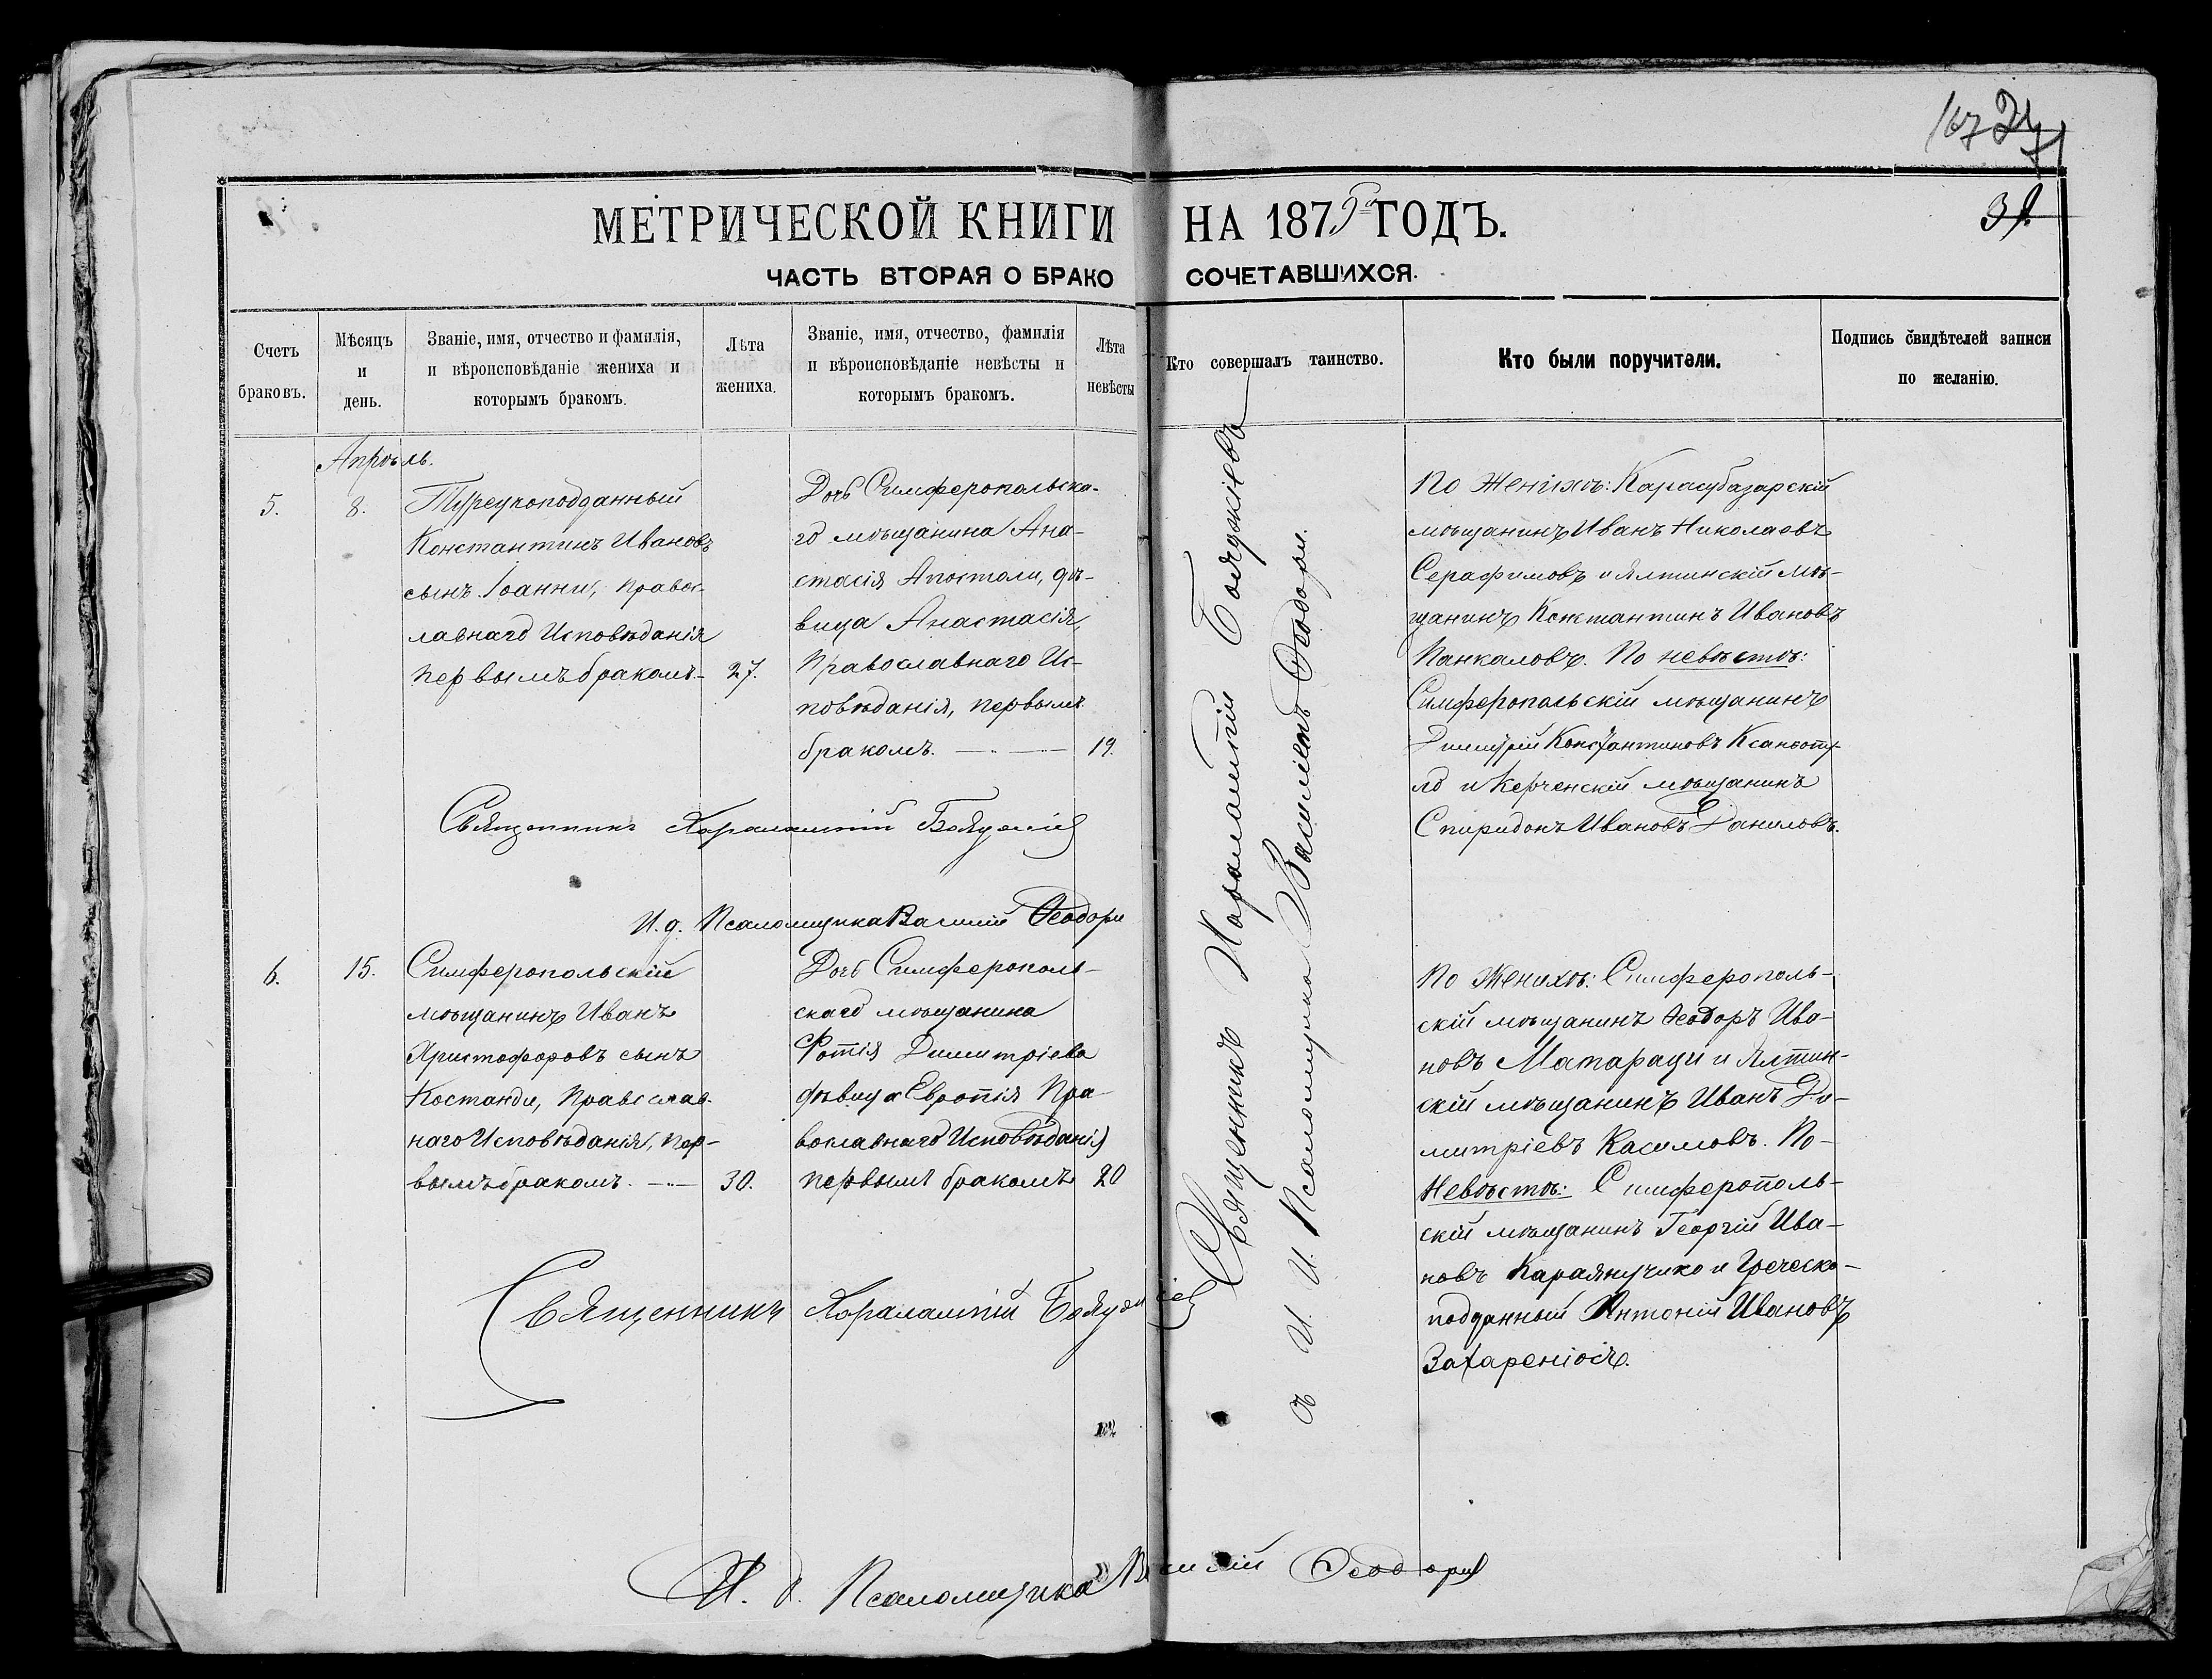 167
31
МЕТРИЧЕСКОЙ КНИГИ НА 1875 ГОДЪ.
ЧАСТЬ ВТОРАЯ О БРАКОСОЧЕТАВШИХСЯ.
Счетъ браковъ.
Мѣсяцъ и день.
Званіе, имя, отчество и фамилія,
и вѣроисповѣданіе жениха и
которымъ бракомъ.
Лѣта жениха.
Званіе, имя, отчество, фамилія
и вѣроисповѣданіе невѣсты и
которымъ бракомъ.
Лѣта невѣсты
Кто совершалъ таинство.
Кто были поручители.
Подпись свидѣтелей записи
по желанію.
Апрѣль.
5.
8.
Турецкоподданный
Константинъ Ивановъ
сынъ Іоанни, правос-
лавнаго Исповѣданія
первымъ бракомъ-
27.
Дочь Симферопольска-
го мѣщанина Ана-
стасія Апостоли, дѣ-
вица Анастасія,
Православнаго Ис-
повѣданія, первымъ
бракомъ.
19.
По Женихѣ: Карасубазарскій
мѣщанинъ Иванъ Николаевъ
Серафимовъ и Ялтинскій мѣ-
щанинъ Константинъ Ивановъ
Панкаловъ. По невѣстѣ:
Симферопольскій мѣщанинъ
Димитрій Константиновъ Ксанѳопу-
ло и Керченскій мѣщанинъ
Спиридонъ Ивановъ Даниловъ.
Священникъ Харалампій
И. д. Псаломщика Василій Ѳеодори
6.
15.
Симферопольскій
мѣщанинъ Иванъ
Христофоровъ сынъ
Костанди, Православ-
наго Исповѣданія, пер-
вымъ бракомъ.
30.
Дочь Симферополь-
скаго мѣщанина
Фотія Димитріева
дѣвица Европія Пра-
вославнаго Исповѣданія
первымъ бракомъ
20
По Женихѣ: Симферополь-
скій мѣщанинъ Ѳеодоръ Ива-
новъ Матараци и Ялтин-
скій мѣщанинъ Иванъ Ди-
митріевъ Касимовъ. По-
Невѣстѣ: Симферополь-
скій мѣщанинъ Георгій Ива-
новъ и Греческо-
подданный Антоній Ивановъ
Священникъ Харалампій
И. д. Псаломщика Василій Ѳеодори
Священникъ Харалампій
И. Псаломщика Василій Ѳеодори.